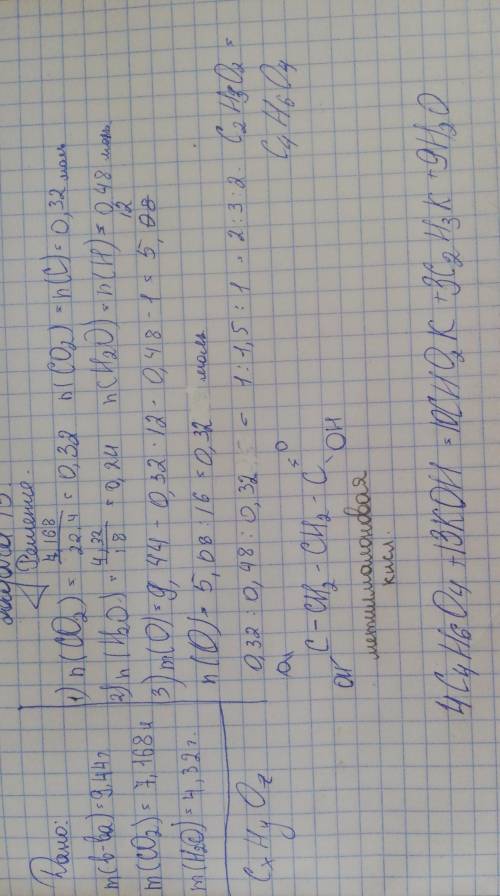 Решение.
Дано:
m(в-ва) = 9,44 г
m(CO2) = 7,168 л
m(H2O) = 4,32 г.
CxHyOz
1) n(CO2) = 7,168 / 22,4 = 0,32 n(CO2) = n(C) = 0,32 моль
2) n(H2O) = 4,32 / 18 = 0,24 n(H2O) = n(H) = 0,48 моль
3) m(O) = 9,44 - 0,32 · 12 - 0,48 · 1 = 5,12
n(O) = 5,08 : 16 = 0,32 моль
0,32 : 0,48 : 0,32 = 1 : 1,5 : 1 = 2 : 3 : 2. C2H3O2 =
C4H6O4
O
C - CH2 - CH2 - C = O
OH
OH
метилмалоновая
кисл.
4C4H6O4 + 13KOH = 10CHO2K + 3C2H3K + 9H2O